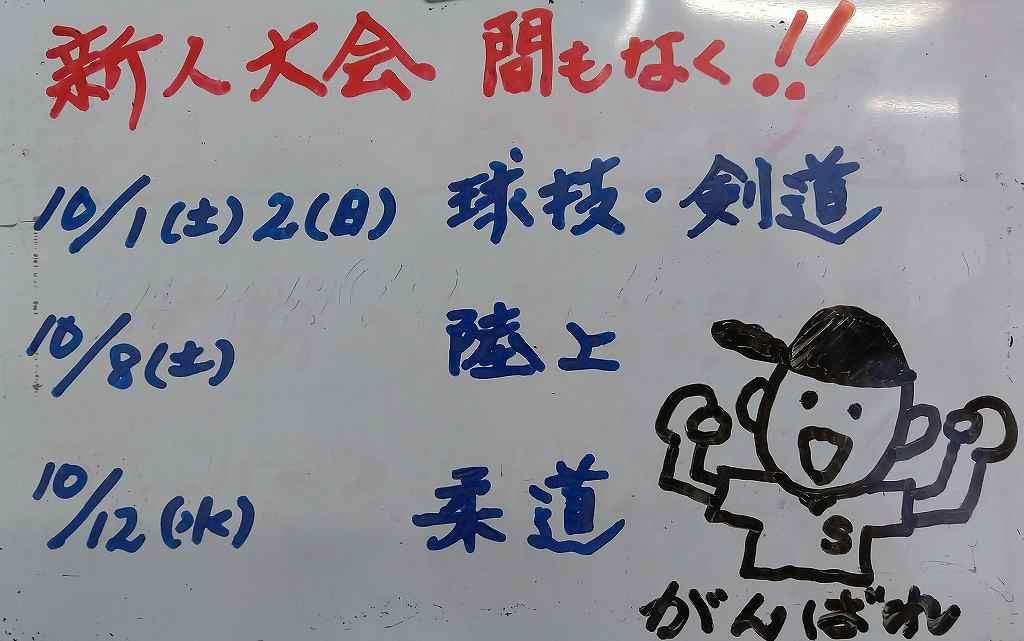 新人大会 間もなく!!
10/1(土)2(日) 球技・剣道
10/8(土) 陸上
10/12(水) 柔道
S
がんばれ